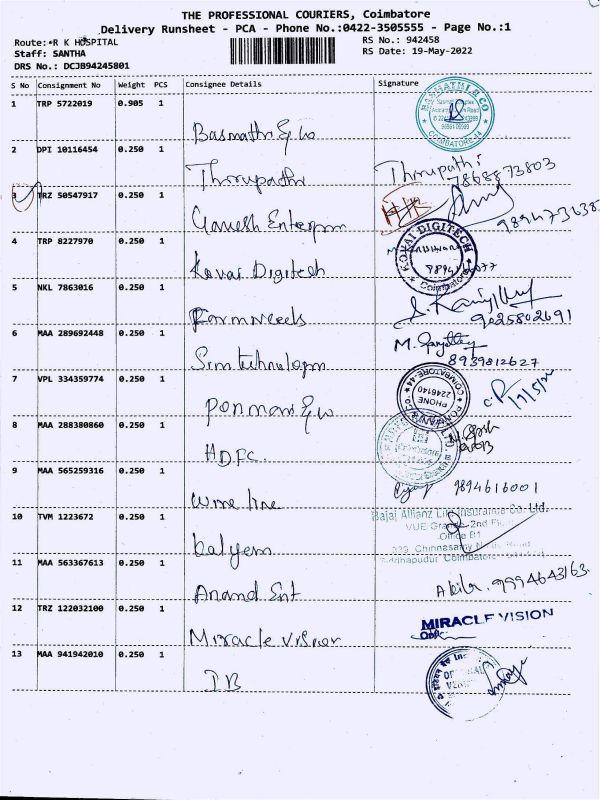 THE PROFESSIONAL COURIERS, Coimbatore
Delivery Runsheet - PCA - Phone No.:0422-3505555 - Page No.:1
Route: R K HOSPITAL
RS No.: 942458
Staff: SANTHA
RS Date: 19-May-2022
DRS No.: DCJB94245801
S No Consignment No Weight PCS Consignee Details Signature
1 TRP 5722019 0.905 1
Basmathi & Co
BASMATHI & CO
COIMBATORE-44
2 DPI 10116454 0.250 1
Thirupathi
Thirupathi
7868873803
3 TRZ 50547917 0.250 1
Ganesh Enterprises
4 TRP 8227970 0.250 1
Kovai Digitech
KOVAI DIGITECH
Coimbatore
5 NKL 7863016 0.250 1
Farmneeds
9025802691
6 MAA 289692448 0.250 1
Sim technologies
8939812627
7 VPL 334359774 0.250 1
Ponmani & Co
COIMBATORE-44
PHONE
2246140
8 MAA 288380860 0.250 1
HDFC
9 MAA 565259316 0.250 1
wime line
9894616001
10 TVM 1223672 0.250 1
kalyani
Bajaj Allianz Life Insurance Co. Ltd.
VUE Grande 2nd Floor
Office B1
339 Chinnasamy Road
Coimbatore
11 MAA 563367613 0.250 1
Anand Ent
Akila. 9994643163
12 TRZ 122032100 0.250 1
Miracle vision
MIRACLE VISION
13 MAA 941942010 0.250 1
IB